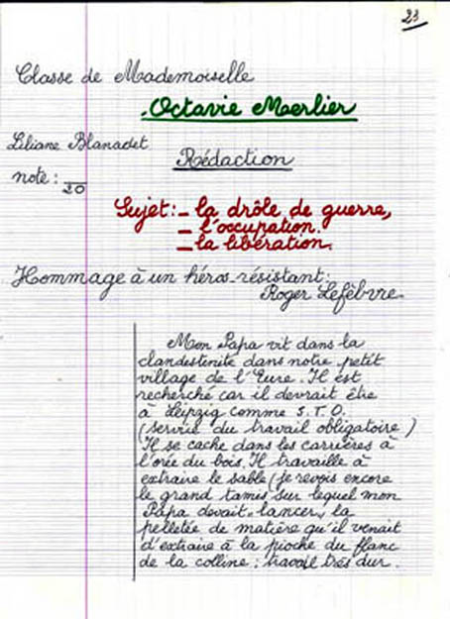 23
Classe de Mademoiselle
Octavie Merlier
Liliane Blanadet
Rédaction
note : 20
Sujet : - la drôle de guerre,
- l'occupation.
- la libération.
Hommage à un héros-résistant :
Roger Lefèbvre
Mon Papa vit dans la
clandestinité dans notre petit
village de l'Eure. Il est
recherché car il devrait être
à Leipzig comme S.T.O.
(service du travail obligatoire)
Il se cache dans les carrières à
l'orée du bois. Il travaille à
extraire le sable (je revois encore
le grand tamis sur lequel mon
Papa devait lancer, la
pelletée de matière qu'il venait
d'extraire à la pioche du flanc
de la colline : travail très dur.